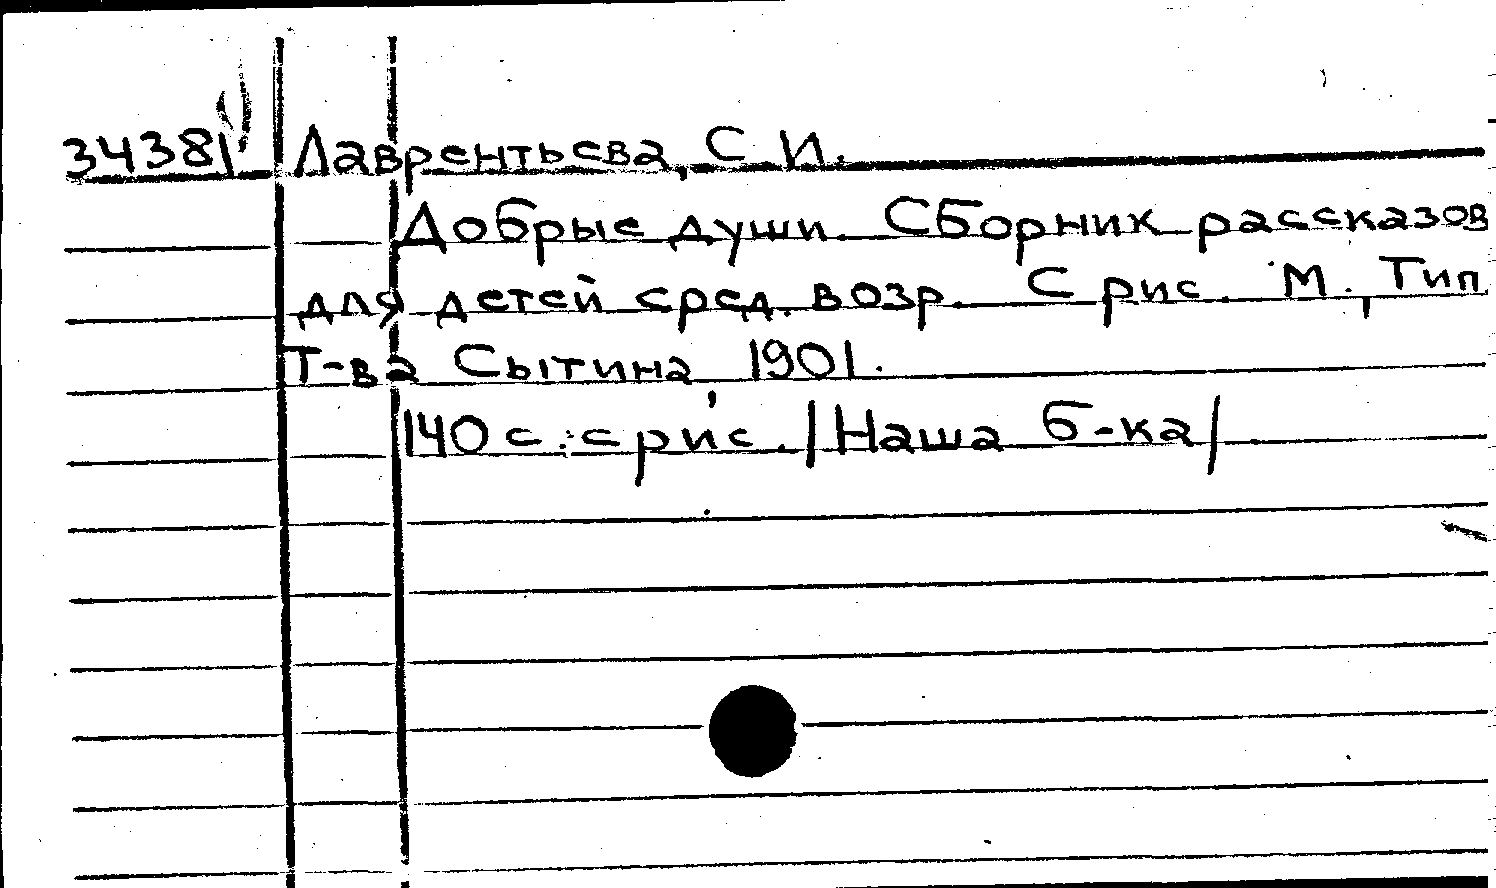 34381 Лаврентьева, С И.
Добрые души. Сборник рассказов
для детей сред. возр. С рис. М., Тип.
Т-ва Сытина, 1901.
140 с.: с рис. /Наша б-ка/